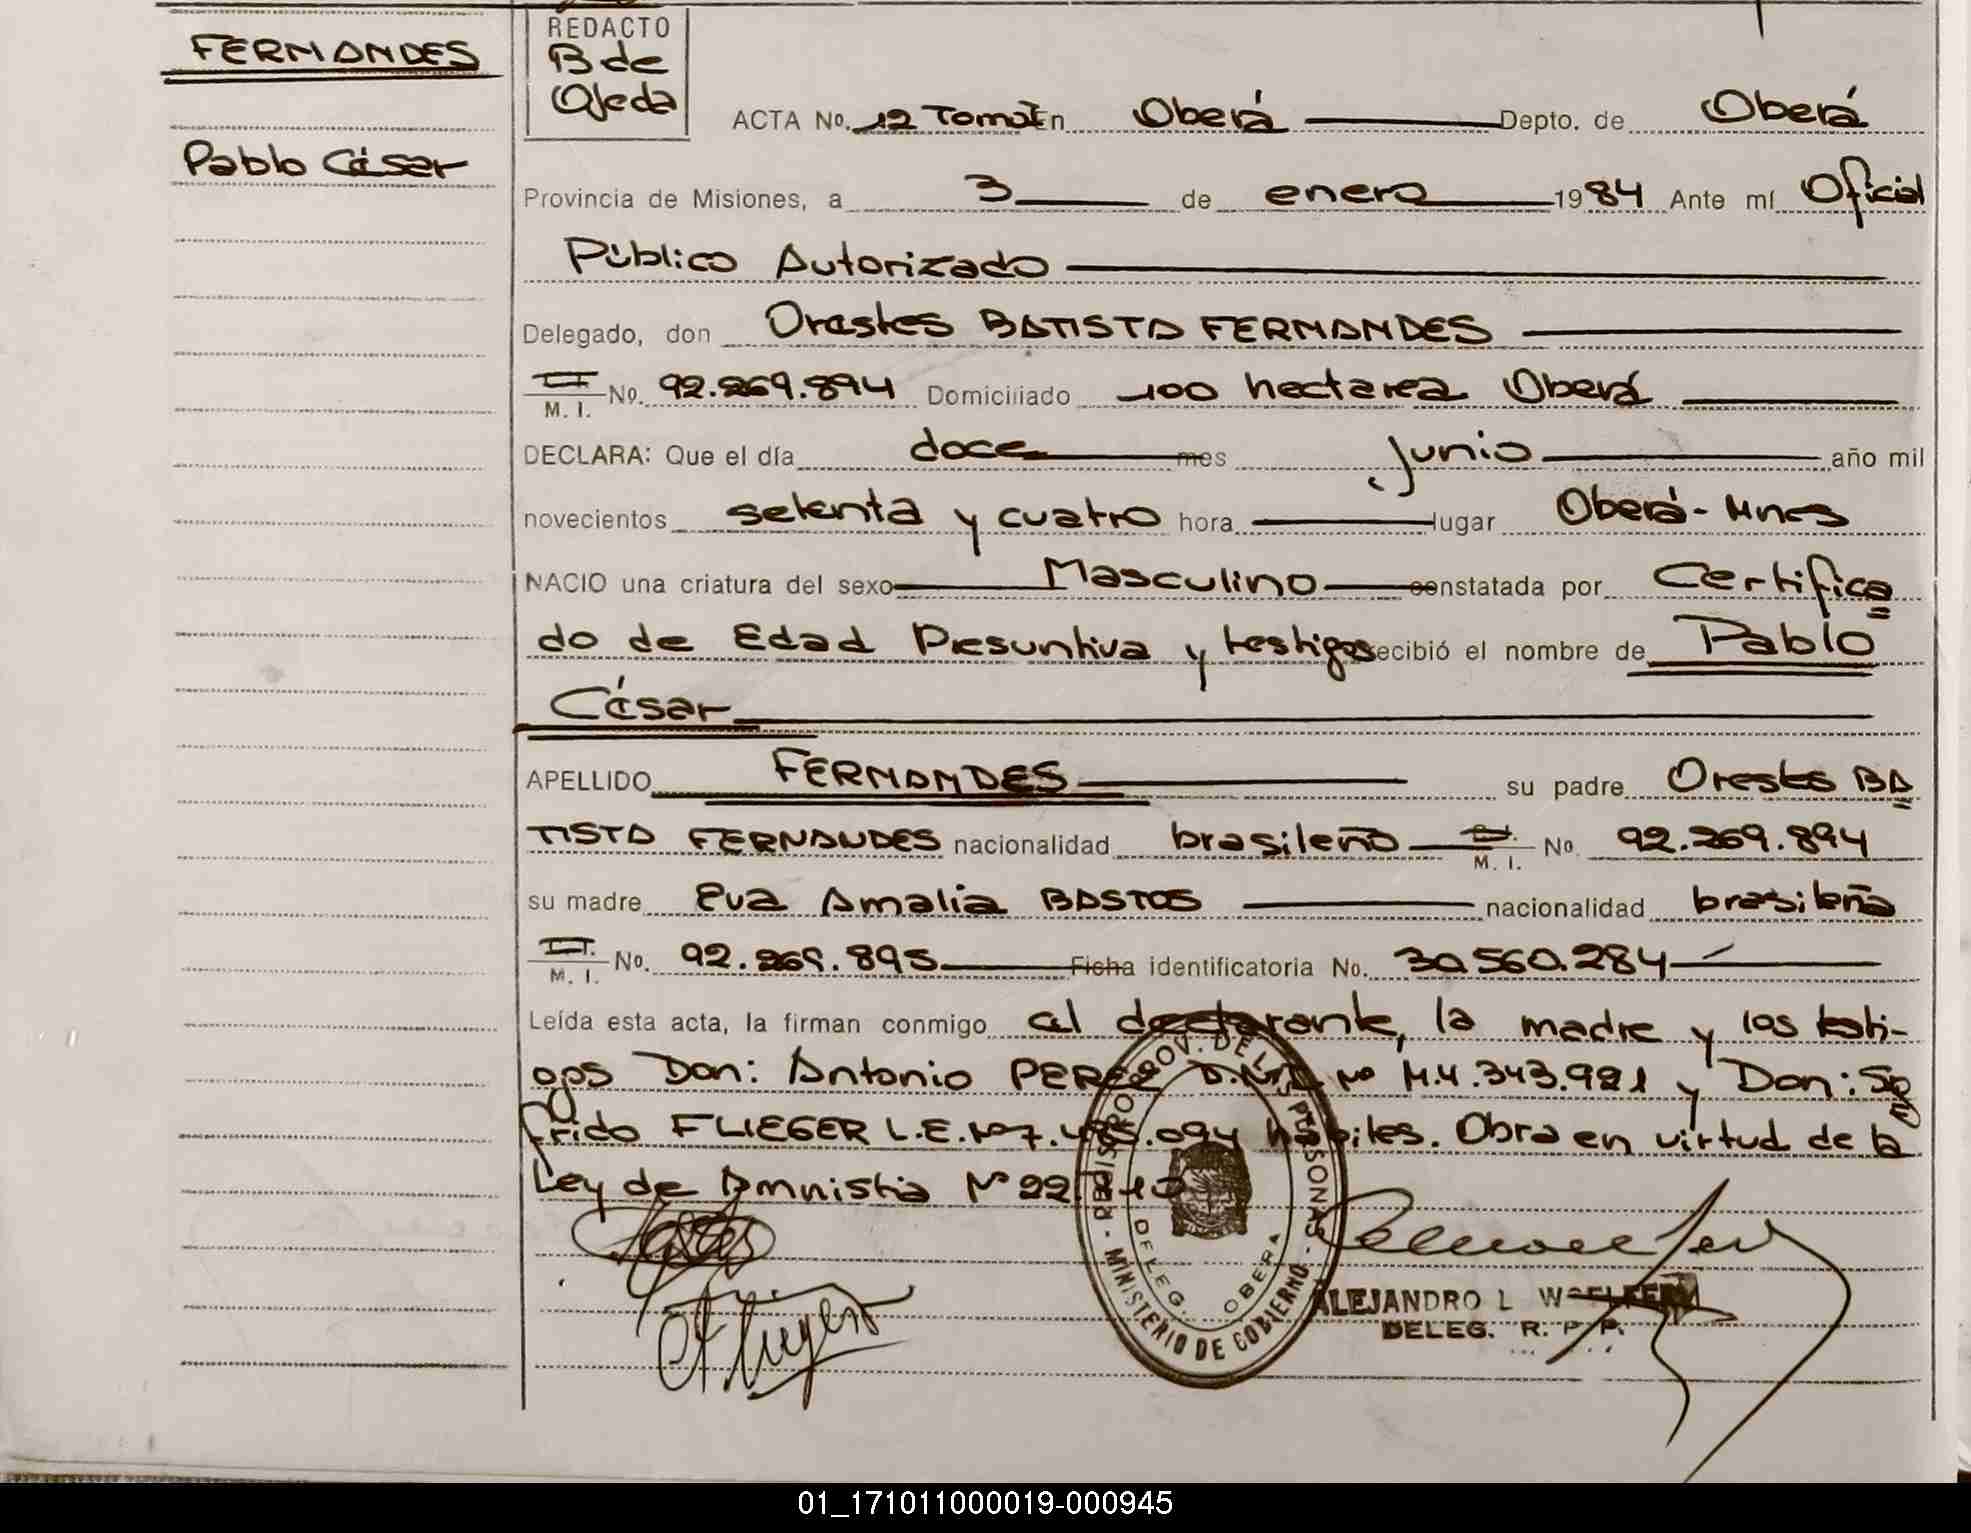 FERNANDES
Pablo César
REDACTO
B de
Ojeda
ACTA No. 12 Tomo I En Oberá Depto. de Oberá
Provincia de Misiones, a 3 de enero 1984 Ante mí Oficial
Público Autorizado
Delegado, don Orestes BATISTA FERNANDES
C.I.
M. I. No. 92.269.894 Domiciliado 100 hectarea Oberá
DECLARA: Que el día doce mes junio año mil
novecientos setenta y cuatro hora lugar Oberá - Mnes
NACIO una criatura del sexo Masculino constatada por Certifica
do de Edad Presuntiva y testigos recibió el nombre de Pablo
César
APELLIDO FERNANDES su padre Orestes BA
TISTA FERNANDES nacionalidad brasileño C.I.
M. I. No. 92.269.894
su madre Eva Amalia BASTOS nacionalidad brasileña
C.I.
M. I. No. 92.269.895 Ficha identificatoria No. 30.560.284
Leída esta acta, la firman conmigo el declarante, la madre y los testi-
gos Don: Antonio PEREZ D.N.I. Nº M.4.343.921 y Don: Sig
frido FLIEGER L.E. Nº 7. .094 hábiles. Obra en virtud de la
Ley de Amnistia Nº 22.
REGISTRO PROV. DE LAS PERSONAS - MINISTERIO DE GOBIERNO -
DELEG. OBERA
ALEJANDRO L
DELEG. R. P. P.
01_171011000019-000945